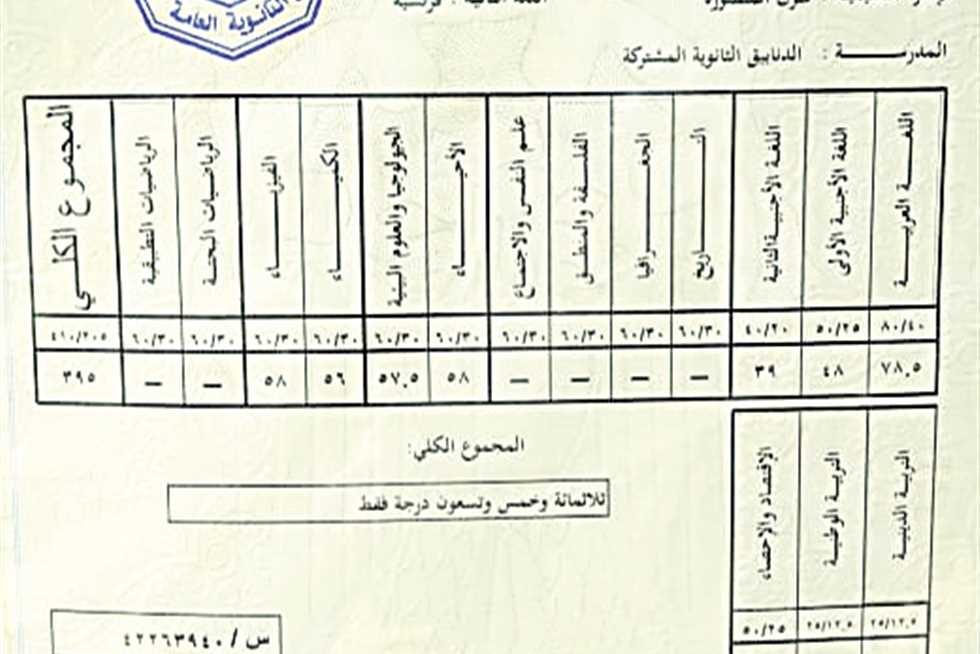 الثانوية العامة
المدرســـــة : الدنابيق الثانوية المشتركة
اللغـــة العربيـــة
اللغة الأجنبية الأولى
اللغة الأجنبية الثانية
التـــــاريخ
الجغـــــرافيا
الفلسفة والمنطق
علم النفس والاجتماع
الأحيـــــاء
الجيولوجيا والعلوم البيئية
الكيميـــــاء
الفيزيـــــاء
الرياضيات البحتة
الرياضيات التطبيقية
المجموع الكلـــي
٨٠/٤٠ ٥٠/٢٥ ٤٠/٢٠ ٦٠/٣٠ ٦٠/٣٠ ٦٠/٣٠ ٦٠/٣٠ ٦٠/٣٠ ٦٠/٣٠ ٦٠/٣٠ ٦٠/٣٠ ٦٠/٣٠ ٦٠/٣٠ ٤١٠/٢٠٥
٧٨.٥ ٤٨ ٣٩ — — — — ٥٨ ٥٧.٥ ٥٦ ٥٨ — — ٣٩٥
المجموع الكلي:
ثلاثمائة وخمس وتسعون درجة فقط
التربية الدينية
التربية الوطنية
الإقتصاد والإحصاء
٢٥/١٢.٥ ٢٥/١٢.٥ ٥٠/٢٥
س / ٤٢٢٦٣٩٤٠